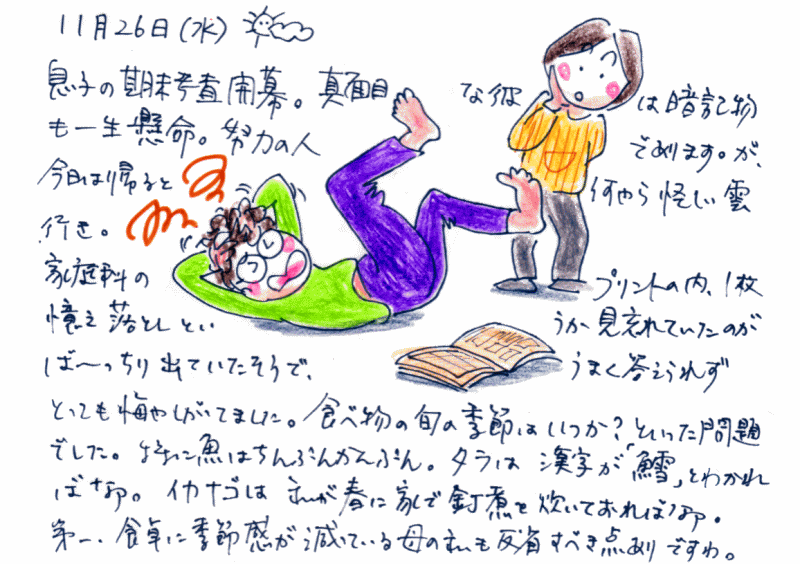 11月26日(水)
息子の期末考査開幕。真面目な彼は暗記物
も一生懸命。努力の人であります。が、
今日は帰ると何やら怪しい雲
行き。
家庭科のプリントの内、1枚
憶え落としというか見忘れていたのが
ば〜っちり出ていたそうで、うまく答えられず
とっても悔やしがってました。食べ物の旬の季節はいつか?といった問題
でした。特に魚はちんぷんかんぷん。タラは漢字が「鱈」とわかれ
ばなぁ。イカナゴは私が春に家で釘煮を炊いておればなぁ。
第一、食卓に季節感が減っている母の私も反省すべき点ありですわ。